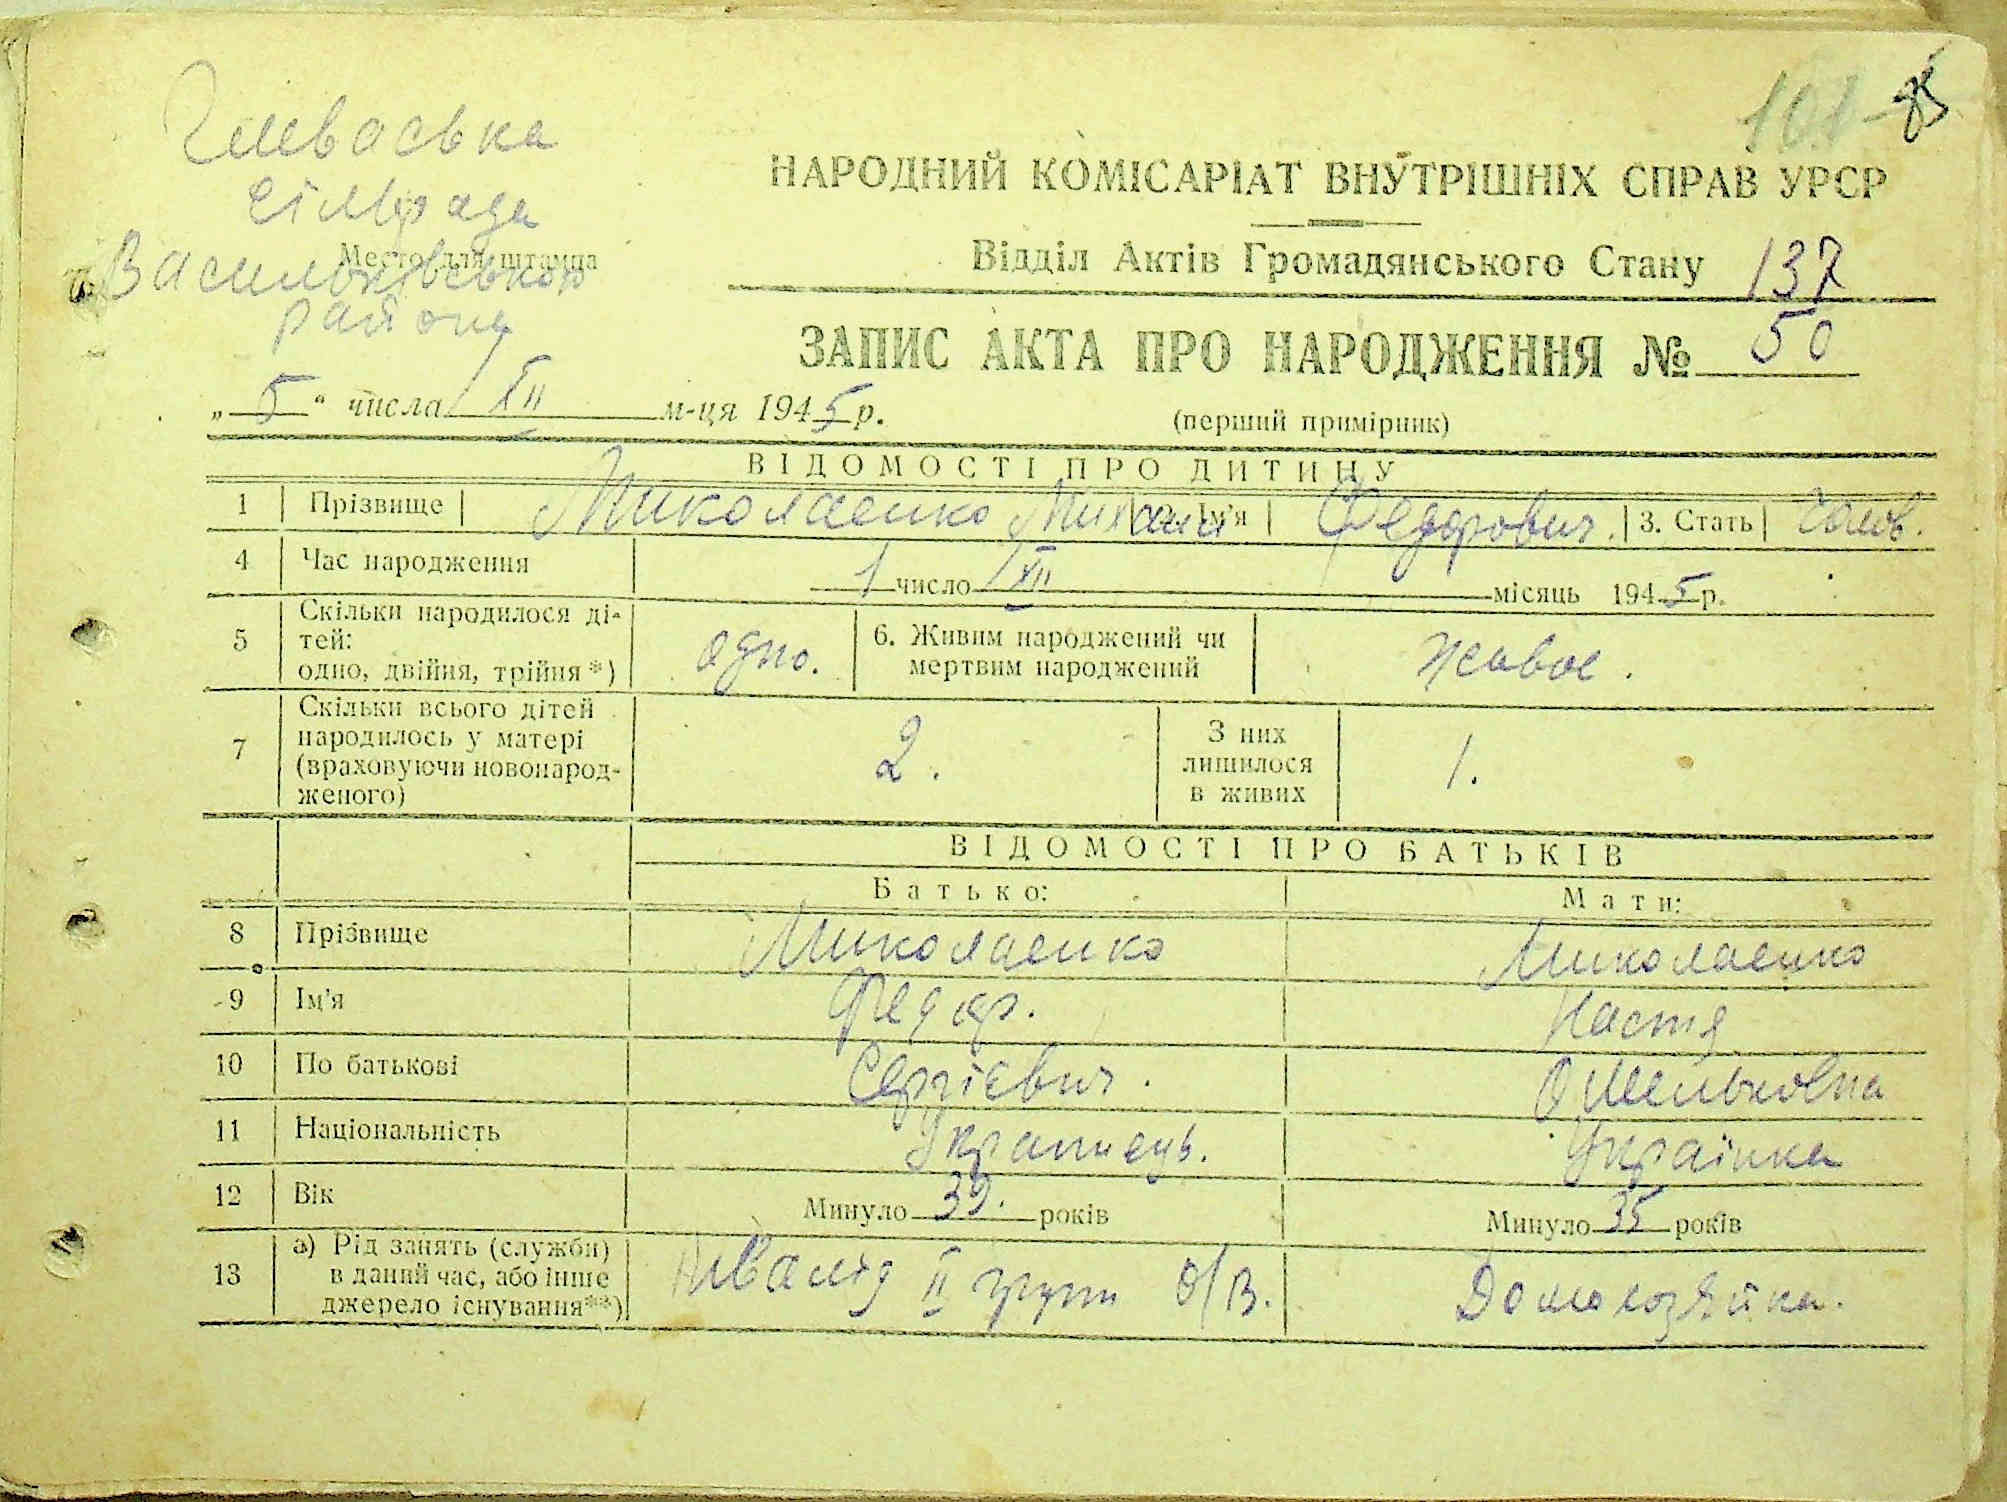 Глеваська
сільрада
Место для штампа
Васильківського
району
101
НАРОДНИЙ КОМІСАРІАТ ВНУТРІШНІХ СПРАВ УРСР
Відділ Актів Громадянського Стану 137
ЗАПИС АКТА ПРО НАРОДЖЕННЯ № 50
„ 5 “ числа XII м-ця 1945 р. (перший примірник)
ВІДОМОСТІ ПРО ДИТИНУ
1 Прізвище Миколаенко Михаил 2. Ім'я Федорович. 3. Стать Чолов.
4 Час народження 1 число XII місяць 1945 р.
5 Скільки народилося ді-
тей:
одно, двійня, трійня *) одно. 6. Живим народжений чи
мертвим народжений живое.
7 Скільки всього дітей
народилось у матері
(враховуючи новонарод-
женого) 2. З них
лишилося
в живих 1.
ВІДОМОСТІ ПРО БАТЬКІВ
Батько: Мати:
8 Прізвище Миколаенко Миколаенко
9 Ім'я Федор. Настя
10 По батькові Сергієвич. Омельковна
11 Національність Украинець. Українка
12 Вік Минуло 39. років Минуло 35 років
13 а) Рід занять (служби)
в даний час, або інше
джерело існування **) Інвалід II групи О/В. Домохозяйка.